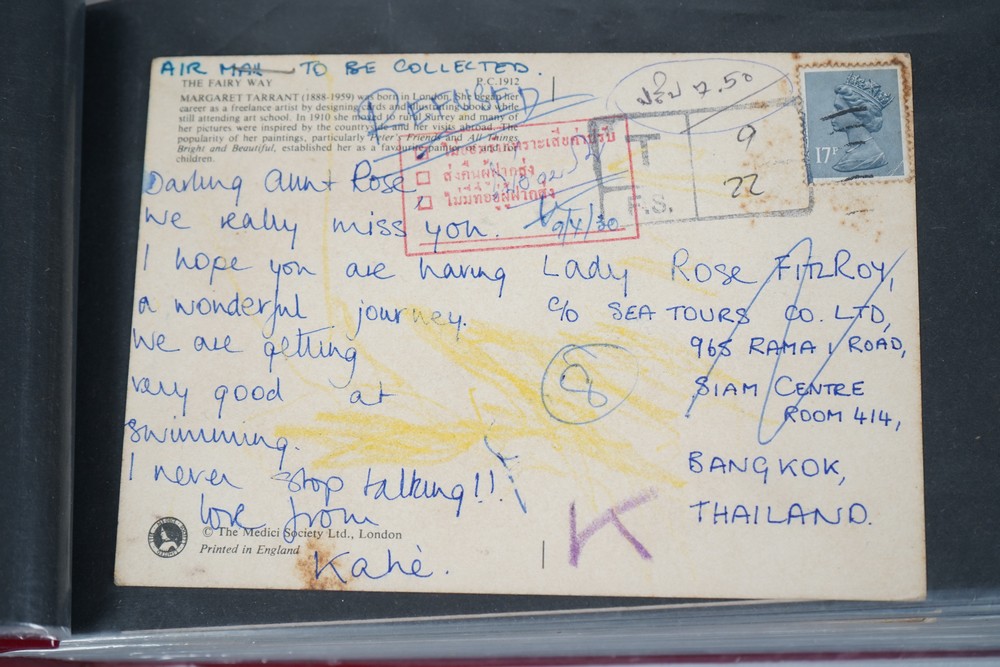 AIR MAIL TO BE COLLECTED.
THE FAIRY WAY
P.C.1912
MARGARET TARRANT (1888-1959) was born in London. She began her
career as a freelance artist by designing cards and illustrating books while
still attending art school. In 1910 she moved to rural Surrey and many of
her pictures were inspired by the country life and her visits abroad. The
popularity of her paintings, particularly Peter's Friends and All Things
Bright and Beautiful, established her as a favourite painter of and for
children.
REFUSED
ปรับ 7.50
17P
T
9
22
F.S.
ไม่ยอมรับเพราะเสียค่าปรับ
ส่งคืนผู้ฝากส่ง
ไม่มีที่อยู่ผู้ฝากส่ง
9/4/30
Darling Aunt Rose,
We really miss you.
I hope you are having
a wonderful journey.
We are getting
very good at
swimming.
I never stop talking!!
love from
Katie.
Lady Rose FitzRoy,
C/O SEA TOURS CO. LTD,
965 RAMA 1 ROAD,
SIAM CENTRE
ROOM 414,
BANGKOK,
THAILAND.
8
K
© The Medici Society Ltd., London
Printed in England